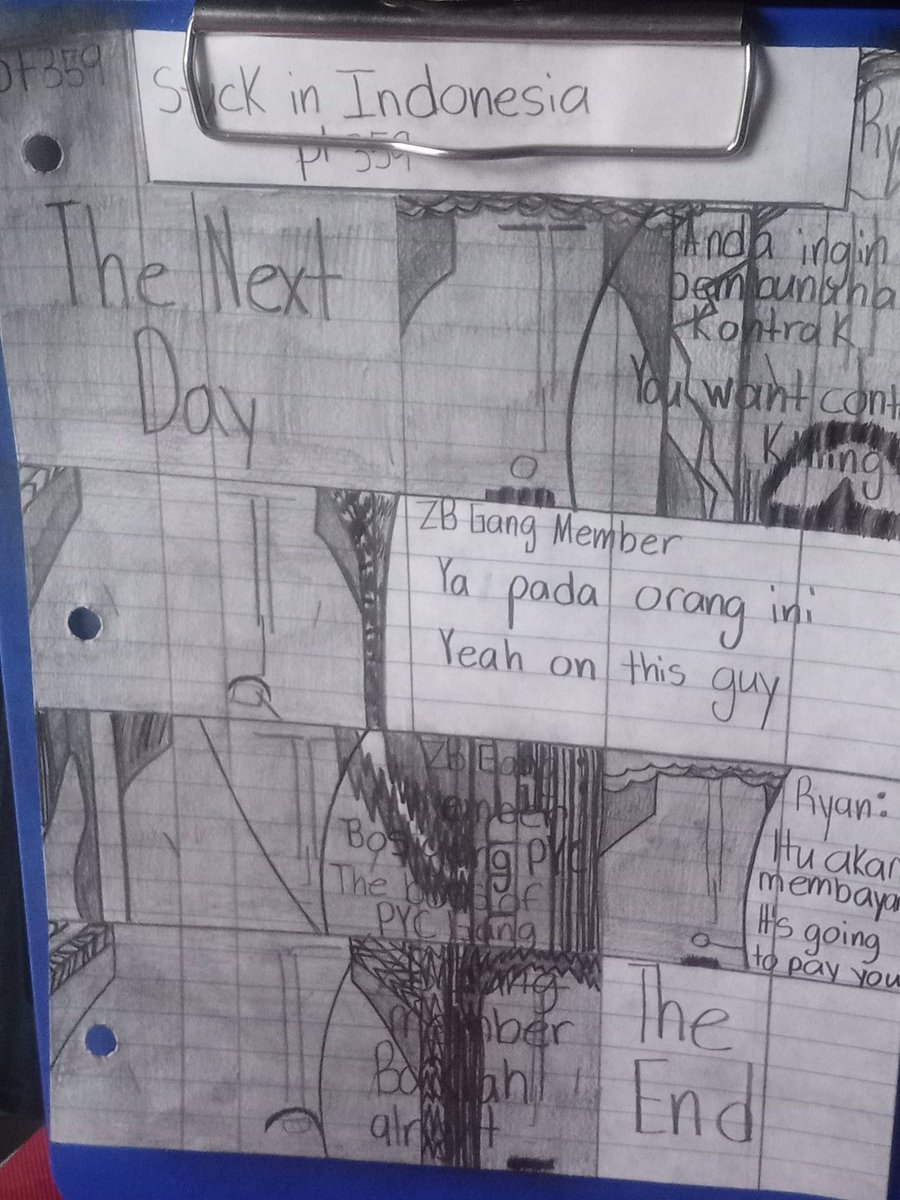 pt 359
Stuck in Indonesia
pt 359
Ry
The Next
Day
Anda ingin
pembunuha
Kontrak
You want cont
Killing
ZB Gang Member
Ya pada orang ini
Yeah on this guy
ZB Gang
Bos gang PVC
The boss of
PVC gang
Ryan:
Itu akan
membayar
It's going
to pay you
gang
member
Baiklah
alright
The
End